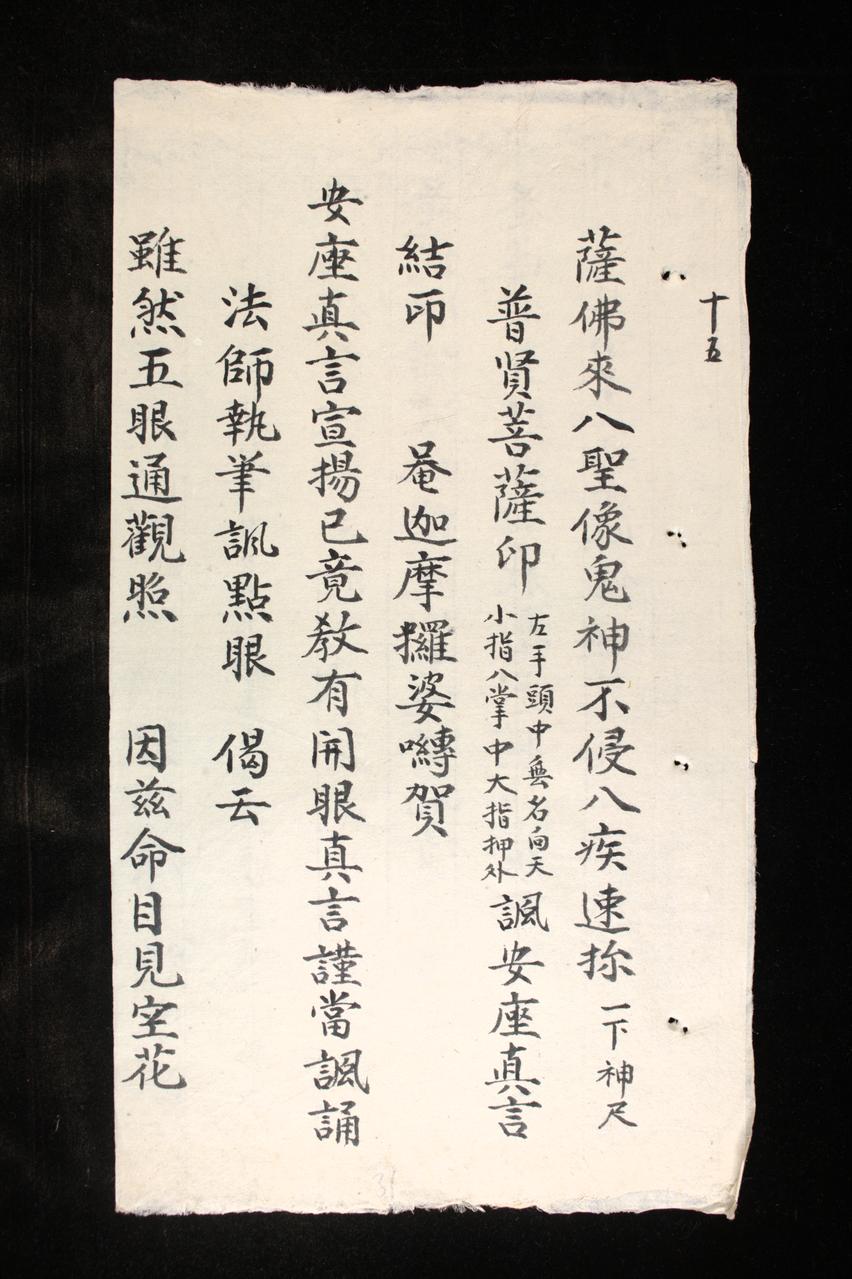 十五
薩佛來入聖像鬼神不侵八疾速捈 一下神尺
普賢菩薩印 左手頭中無名向天
小指入掌中大指押外 諷安座真言
結印 菴迦摩攞婆囀賀
安座真言宣揚已竟教有開眼真言謹當諷誦
法師執筆諷點眼 偈云
雖然五眼通觀照 因茲命目見空花